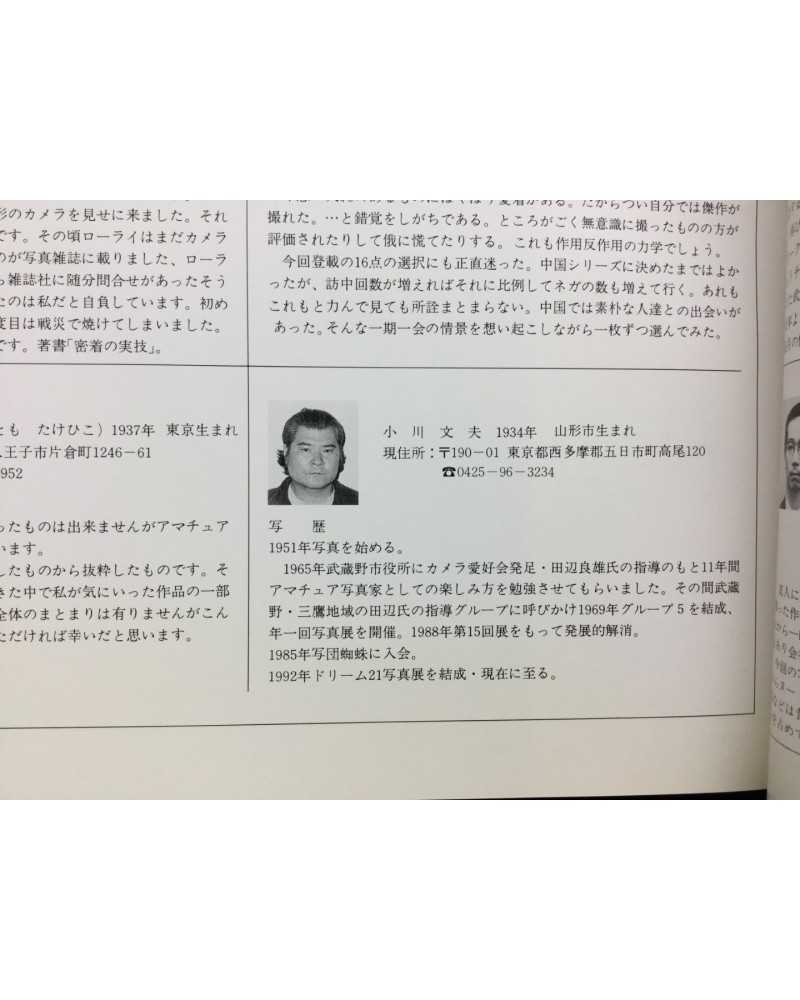 形のカメラを見せに来ました。それ
です。その頃ローライはまだカメラ
のが写真雑誌に載りました、ローラ
ら雑誌社に随分問合せがあったそう
たのは私だと自負しています。初め
度目は戦災で焼けてしまいました。
です。著書「密着の実技」。
撮れた。…と錯覚をしがちである。ところがごく無意識に撮ったものの方が
評価されたりして俄に慌てたりする。これも作用反作用の力学でしょう。
今回登載の16点の選択にも正直迷った。中国シリーズに決めたまではよか
ったが、訪中回数が増えればそれに比例してネガの数も増えて行く。あれも
これもと力んで見ても所詮まとまらない。中国では素朴な人達との出会いが
あった。そんな一期一会の情景を想い起こしながら一枚ずつ選んでみた。
とも たけひこ）1937年 東京生まれ
王子市片倉町1246－61
952
ったものは出来ませんがアマチュア
います。
したものから抜粋したものです。そ
きた中で私が気にいった作品の一部
全体のまとまりは有りませんがこん
ただければ幸いだと思います。
小川文夫 1934年 山形市生まれ
現住所：〒190－01 東京都西多摩郡五日市町高尾120
☎0425－96－3234
写 歴
1951年写真を始める。
1965年武蔵野市役所にカメラ愛好会発足・田辺良雄氏の指導のもと11年間
アマチュア写真家としての楽しみ方を勉強させてもらいました。その間武蔵
野・三鷹地域の田辺氏の指導グループに呼びかけ1969年グループ5を結成、
年一回写真展を開催。1988年第15回展をもって発展的解消。
1985年写団蜘蛛に入会。
1992年ドリーム21写真展を結成・現在に至る。